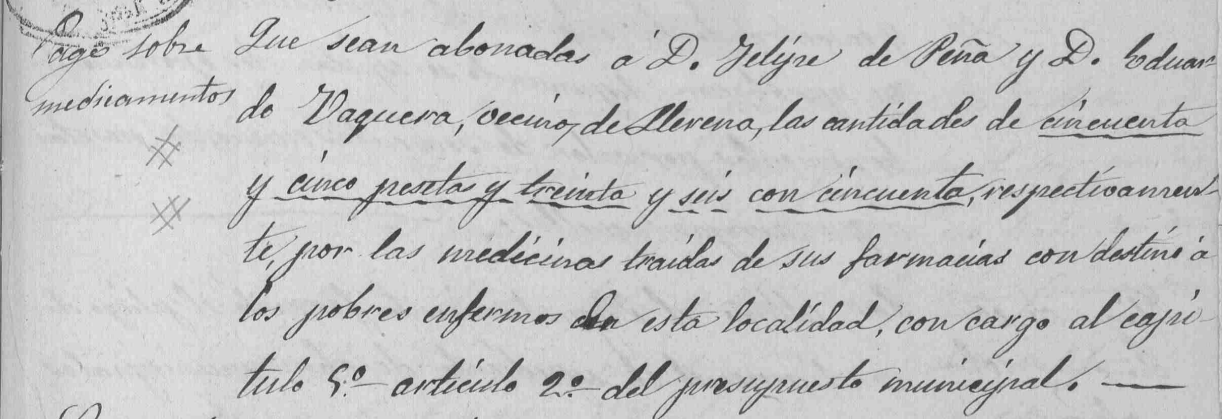 Pago sobre
medicamentos
Que sean abonadas á D. Felipe de Peña y D. Eduar-
do Vaquera, vecinos de Llerena, las cantidades de cincuenta
y cinco pesetas y treinta y seis con cincuenta, respectivamen-
te, por las medicinas traidas de sus farmacias con destino á
los pobres enfermos en esta localidad, con cargo al capi-
tulo 5.º articulo 2.º del presupuesto municipal.